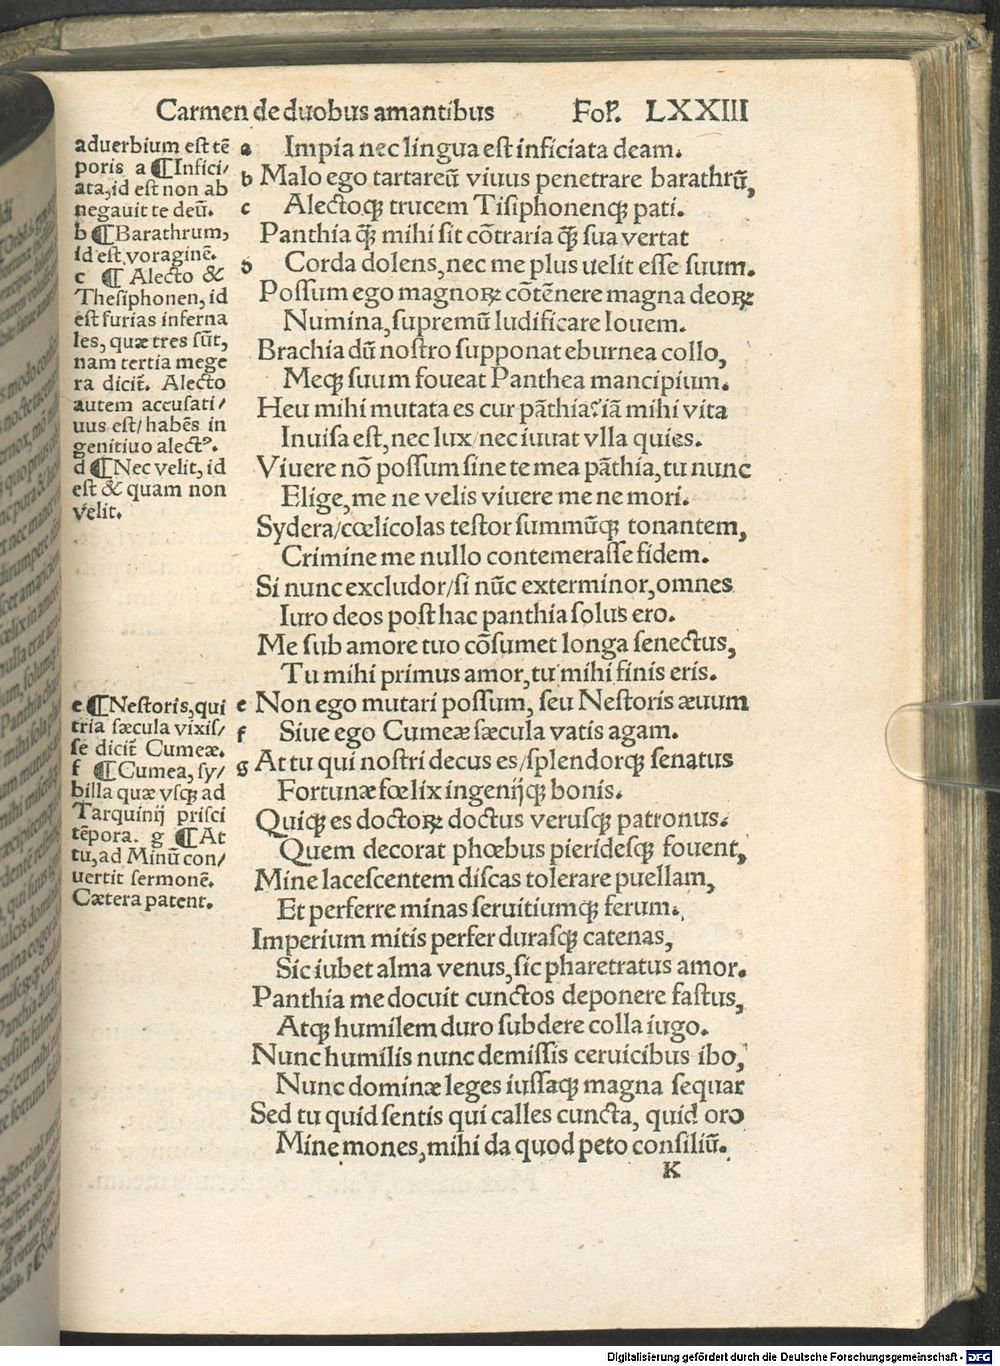 Carmen de duobus amantibus Fol. LXXIII
aduerbium est tē
poris a ¶Infici/
ata, id est non ab
negauit te deū.
b ¶Barathrum,
id est voraginē.
c ¶ Alecto &
Thesiphonen, id
est furias inferna
les, quæ tres sūt,
nam tertia mege
ra dicit᷑. Alecto
autem accusati/
uus est/ habēs in
genitiuo alectꝰ.
d ¶Nec velit, id
est & quam non
velit.
e ¶Nestoris, qui
tria sæcula vixis/
se dicit᷑ Cumeæ.
f ¶Cumea, sy/
billa quæ vsqꝫ ad
Tarquinij prisci
tēpora. g ¶At
tu, ad Minū con/
uertit sermonē.
Cætera patent.
a Impia nec lingua est inficiata deam.
b Malo ego tartareū viuus penetrare barathrū,
c Alectoqꝫ trucem Tisiphonenqꝫ pati.
Panthia qꝫ̄ mihi sit cōtraria qꝫ̄ sua vertat
d Corda dolens, nec me plus uelit esse suum.
Possum ego magnoꝝ cōtēnere magna deoꝝ
Numina, supremū ludificare Iouem.
Brachia dū nostro supponat eburnea collo,
Meqꝫ suum foueat Panthea mancipium.
Heu mihi mutata es cur pāthia? iā mihi vita
Inuisa est, nec lux/ nec iuuat vlla quies.
Viuere nō possum sine te mea pāthia, tu nunc
Elige, me ne velis viuere me ne mori.
Sydera/ cœlicolas testor summūqꝫ tonantem,
Crimine me nullo contemerasse fidem.
Si nunc excludor/ si nūc exterminor, omnes
Iuro deos post hac panthia solus ero.
Me sub amore tuo cōsumet longa senectus,
Tu mihi primus amor, tu mihi finis eris.
e Non ego mutari possum, seu Nestoris æuum
f Siue ego Cumeæ sæcula vatis agam.
g At tu qui nostri decus es/ splendorqꝫ senatus
Fortunæ fœlix ingenijqꝫ bonis.
Quiqꝫ es doctoꝝ doctus verusqꝫ patronus.
Quem decorat phœbus pieridesqꝫ fouent,
Mine lacescentem discas tolerare puellam,
Et perferre minas seruitiumqꝫ ferum.
Imperium mitis perfer durasqꝫ catenas,
Sic iubet alma venus, sic pharetratus amor.
Panthia me docuit cunctos deponere fastus,
Atqꝫ humilem duro subdere colla iugo.
Nunc humilis nunc demissis ceruicibus ibo,
Nunc dominæ leges iussaqꝫ magna sequar
Sed tu quid sentis qui calles cuncta, quid oro
Mine mones, mihi da quod peto consiliū.
K
Digitalisierung gefördert durch die Deutsche Forschungsgemeinschaft - DFG